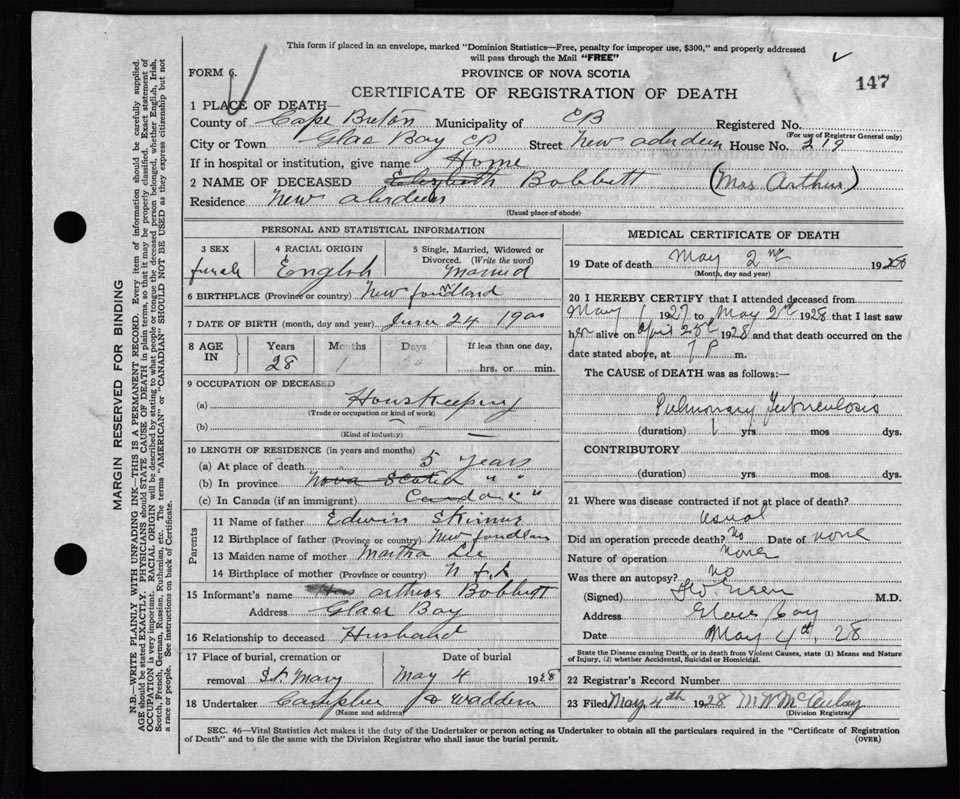 This form if placed in an envelope, marked "Dominion Statistics—Free, penalty for improper use, $300," and properly addressed
will pass through the Mail "FREE"
FORM 6.
PROVINCE OF NOVA SCOTIA
147
CERTIFICATE OF REGISTRATION OF DEATH
1 PLACE OF DEATH—
County of Cape Breton Municipality of CB Registered No.
(For use of Registrar General only)
City or Town Glace Bay CB Street New Aberdeen House No. 219
If in hospital or institution, give name Home
2 NAME OF DECEASED Elizabeth Bobbett (Mrs Arthur)
Residence New Aberdeen
(Usual place of abode)
PERSONAL AND STATISTICAL INFORMATION
3 SEX 4 RACIAL ORIGIN 5 Single, Married, Widowed or
Divorced. (Write the word)
female English Married
6 BIRTHPLACE (Province or country) New foundland
7 DATE OF BIRTH (month, day and year) June 24 1900
8 AGE IN Years Months Days If less than one day,
28 hrs. or min.
9 OCCUPATION OF DECEASED
(a) House Keeping
(Trade or occupation or kind of work)
(b)
(Kind of industry)
10 LENGTH OF RESIDENCE (in years and months)
(a) At place of death 5 years
(b) In province Nova Scotia " "
(c) In Canada (if an immigrant) Canada " "
Parents
11 Name of father Edwin Skinner
12 Birthplace of father (Province or country) New foundland
13 Maiden name of mother Martha
14 Birthplace of mother (Province or country) N f L
15 Informant's name Arthur Bobbett
Address Glace Bay
16 Relationship to deceased Husband
17 Place of burial, cremation or Date of burial
removal St. Mary May 4 1928
18 Undertaker
(Name and address)
MEDICAL CERTIFICATE OF DEATH
19 Date of death May 2nd 1928
(Month, day and year)
20 I HEREBY CERTIFY that I attended deceased from
May 1 1927 to May 2nd 1928 that I last saw
her alive on April 25th 1928 and that death occurred on the
date stated above, at 7 P m.
The CAUSE of DEATH was as follows:—
Pulmonary Tuberculosis
(duration) 1 yrs mos dys.
CONTRIBUTORY
(duration) yrs mos dys.
21 Where was disease contracted if not at place of death?
usual
Did an operation precede death? No Date of none
Nature of operation none
Was there an autopsy? no
(Signed) M.D.
Address Glace Bay
Date May 4th, 28
State the Disease causing Death, or in death from Violent Causes, state (1) Means and Nature
of Injury, (2) whether Accidental, Suicidal or Homicidal.
22 Registrar's Record Number
23 Filed May 4th 1928 McAulay
(Division Registrar)
SEC. 46—Vital Statistics Act makes it the duty of the Undertaker or person acting as Undertaker to obtain all the particulars required in the "Certificate of Registration
of Death" and to file the same with the Division Registrar who shall issue the burial permit.
(OVER)
MARGIN RESERVED FOR BINDING
N.B.—WRITE PLAINLY WITH UNFADING INK—THIS IS A PERMANENT RECORD. Every item of information should be carefully supplied.
AGE should be stated EXACTLY. PHYSICIANS should STATE CAUSE OF DEATH in plain terms, so that it may be properly classified. Exact statement of
OCCUPATION is very important. RACIAL ORIGIN will be described by stating to what people or tongue the deceased person belonged, whether English, Irish,
Scotch, French, German, Russian, Ruthenian, etc. The terms "AMERICAN" or "CANADIAN" SHOULD NOT BE USED as they express citizenship but not
a race or people. See instructions on back of Certificate.